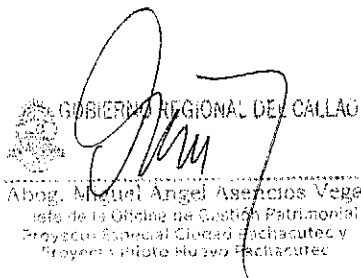 GOBIERNO REGIONAL DEL CALLAO
Abog. Miguel Angel Asencios Vega
Jefe de la Oficina de Gestión Patrimonial
Proyecto Especial Ciudad Pachacutec y
Proyecto Piloto Nuevo Pachacutec